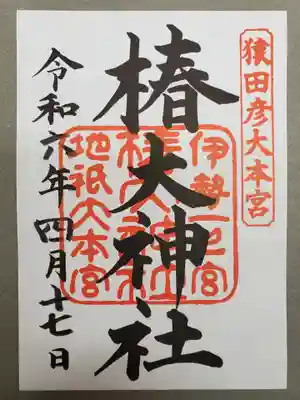 猿田彦大本宮
伊勢一之宮
椿大神社
地祇大本宮
令和六年四月十七日